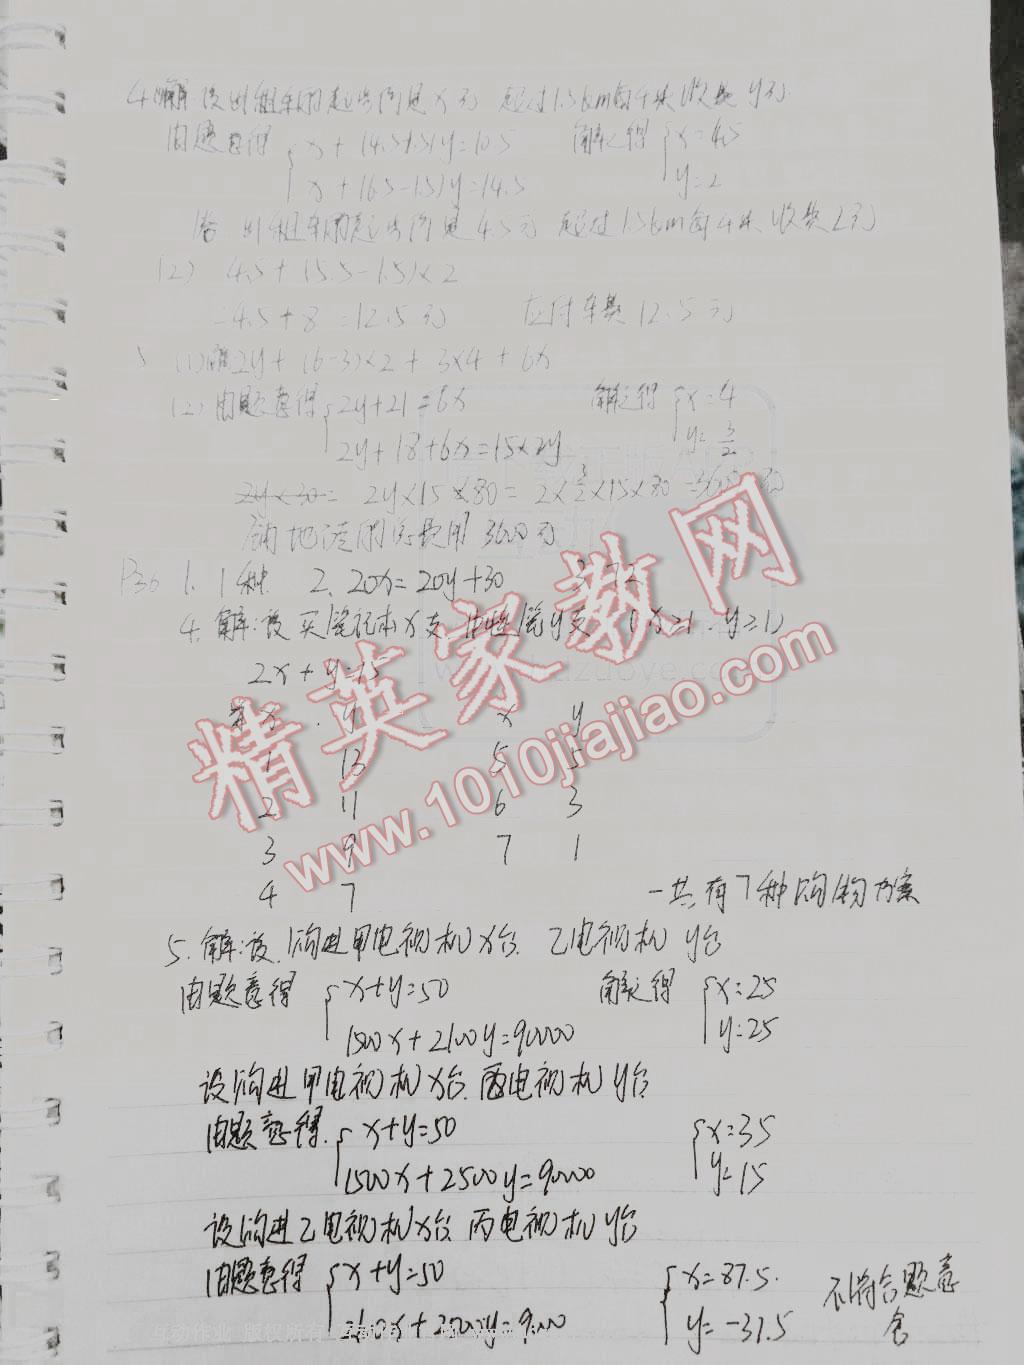 4.解:设出租车的起步价是x元 超过1.5km每千米收费y元
由题意得 { x+(4.5-1.5)y=10.5 解之得 { x=4.5
x+(6.5-1.5)y=14.5 y=2
答 出租车的起步价是4.5元 超过1.5km每千米收费2元
(2) 4.5+(5.5-1.5)×2
=4.5+8=12.5元 应付车费12.5元
5 (1)解2y+(6-3)×2+3×4+6x
(2)由题意得 { 2y+21=6x 解之得 { x=4
2y+18+6x=15×2y y=3/2
2y×15×80=2×3/2×15×80=3600
铺地砖的总费用3600元
P36 1. 1种. 2. 20x=20y+30
4. 解:设买笔记本x支, y支 (x≥1, y≥1)
2x+y=15
x y x y
1 13 5 5
2 11 6 3
3 9 7 1
4 7 一共有7种购物方案
5. 解:设.购进甲电视机x台. 乙电视机y台
由题意得 { x+y=50 解之得 { x=25
1500x+2100y=90000 y=25
设购进甲电视机x台.丙电视机y台
由题意得. { x+y=50 { x=35
1500x+2500y=90000 y=15
设购进乙电视机x台 丙电视机y台
由题意得 { x+y=50 { x=87.5. 不符合题意
2100x+2500y=90000 y=-37.5 舍
精英家教网
www.1010jiajiao.com
互动作业 版权所有